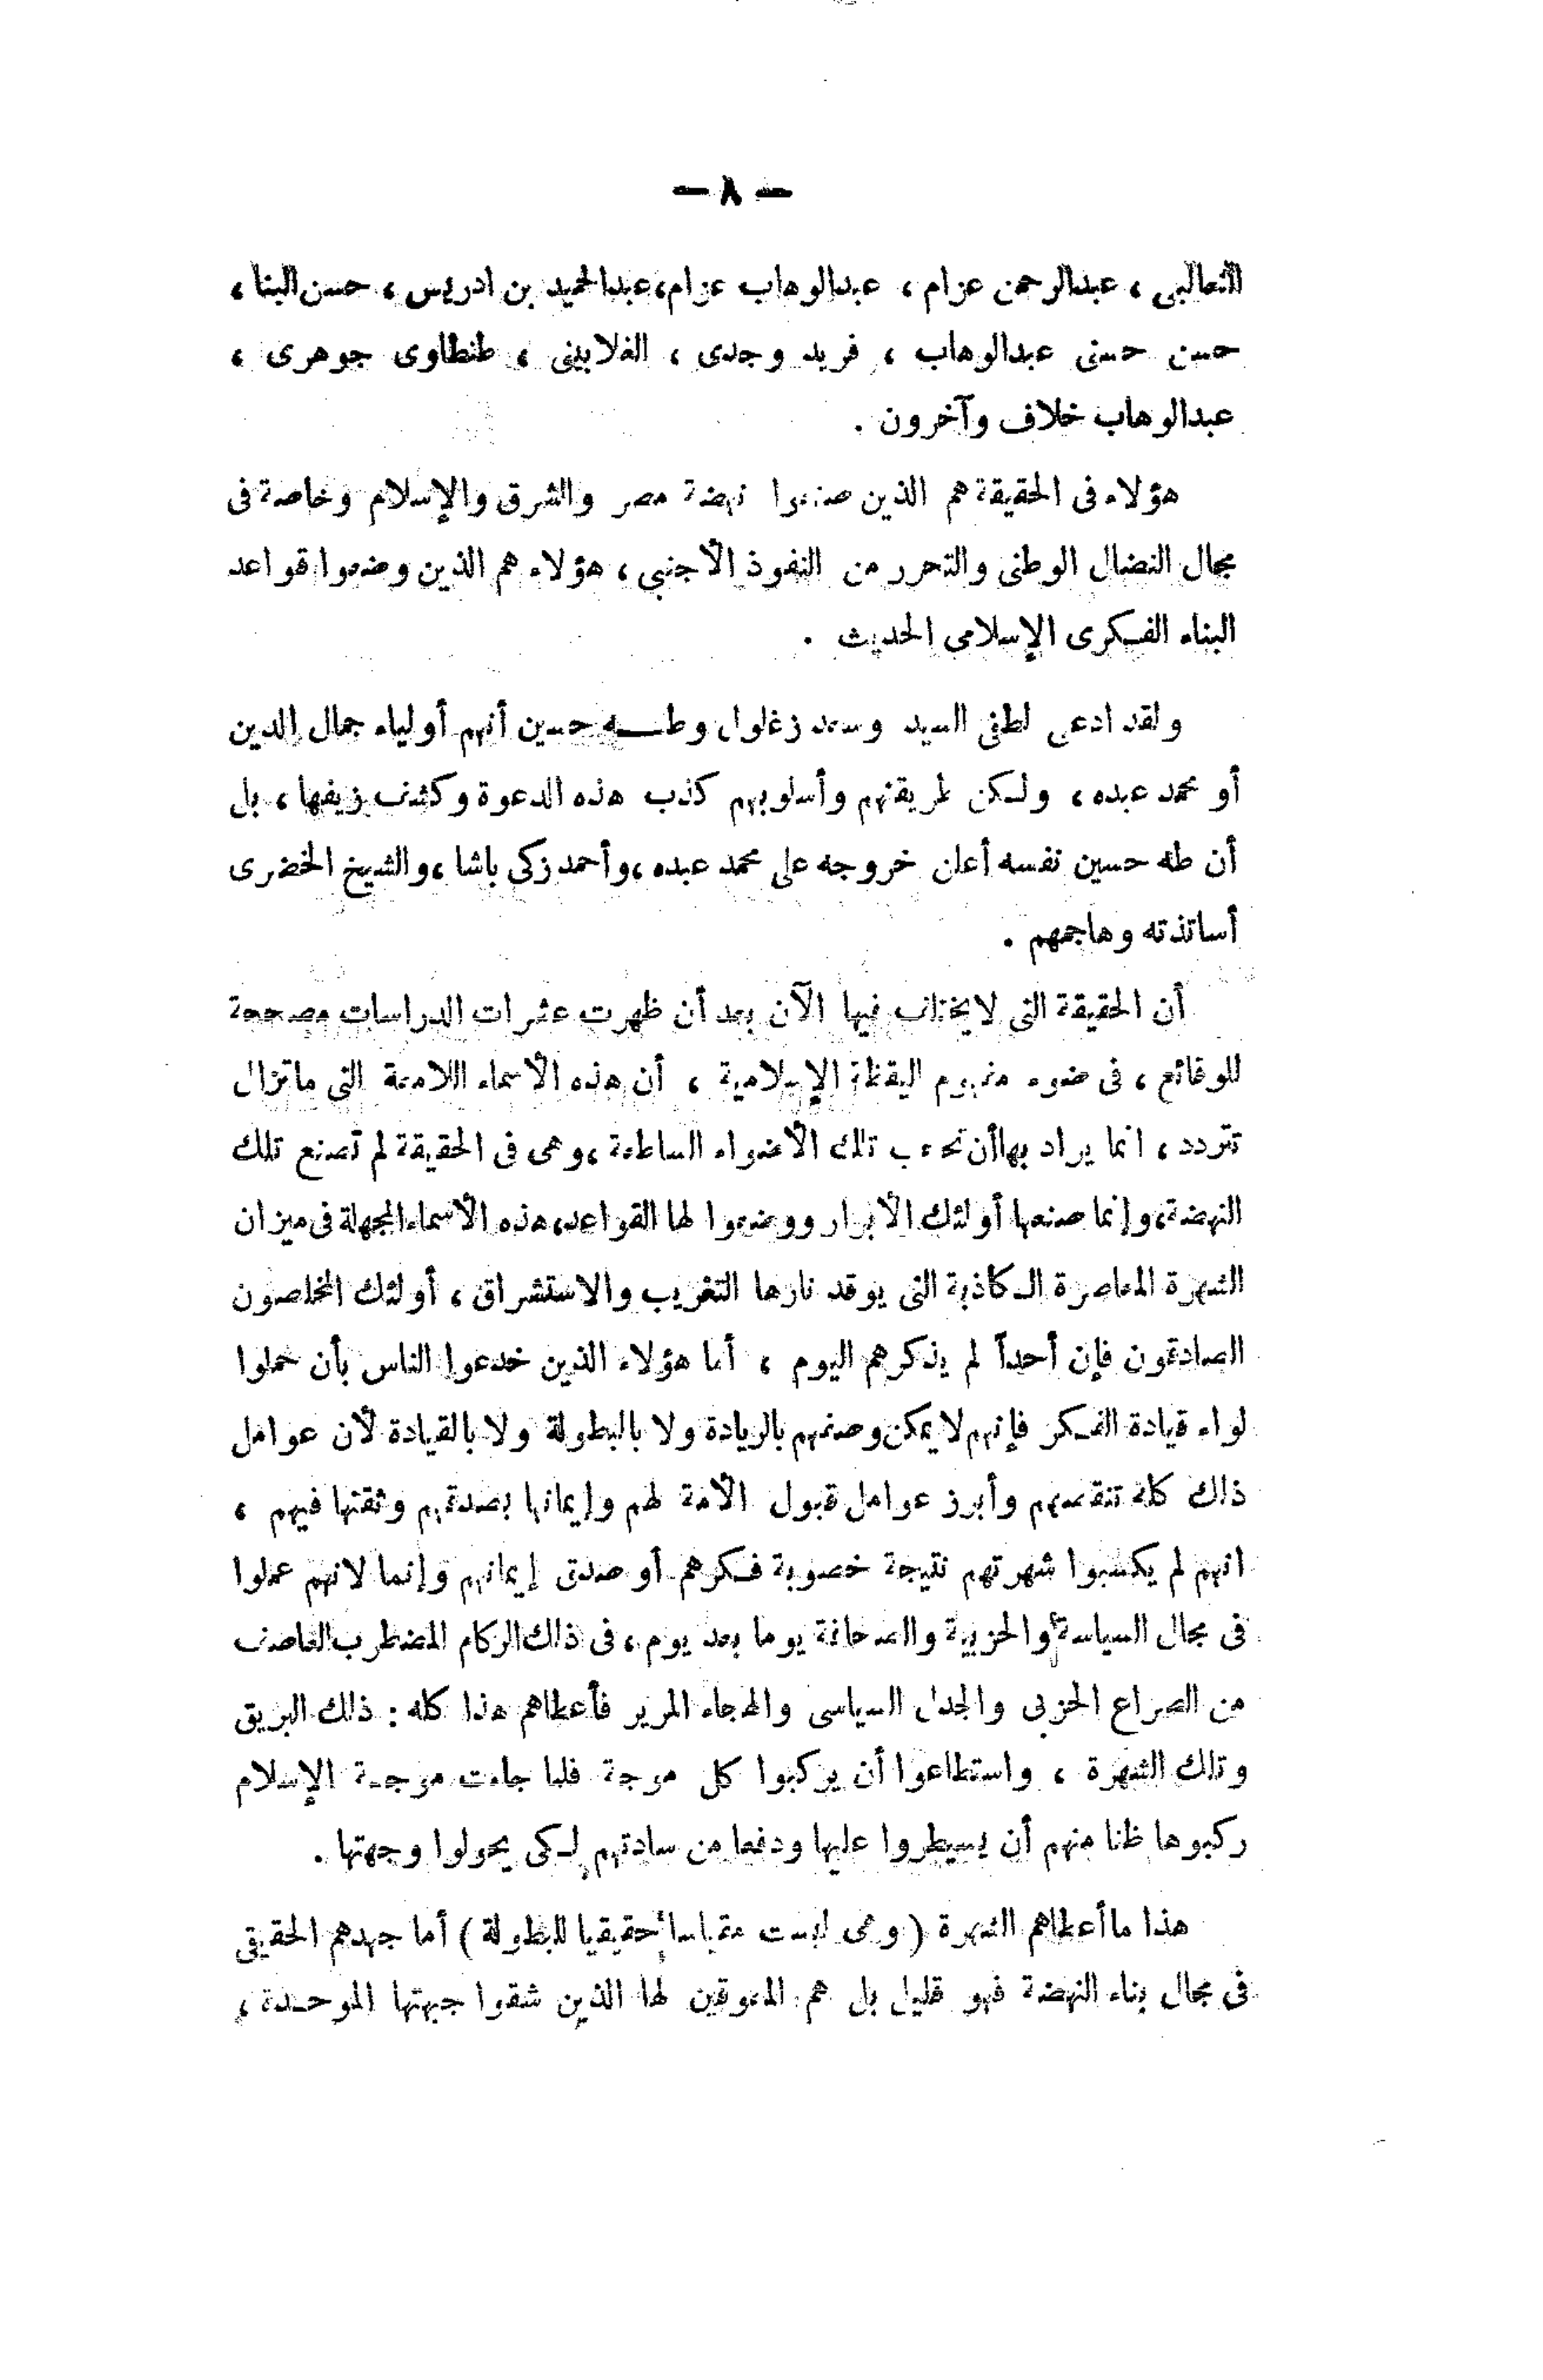 — ٨ —
الثعالبى ، عبدالرحمن عزام ، عبدالوهاب عزام ،عبدالحميد بن ادريس ، حسن البنا ،
حسن حسنى عبدالوهاب ، فريد وجدى ، الغلايينى ، طنطاوى جوهرى ،
عبدالوهاب خلاف وآخرون .
هؤلاء فى الحقيقة هم الذين صنعوا نهضة مصر والشرق والإسلام وخاصة فى
مجال النضال الوطنى والتحرر من النفوذ الأجنبى ، هؤلاء هم الذين وضعوا قواعد
البناء الفكرى الإسلامى الحديث .
ولقد ادعى لطفى السيد وسعد زغلول وطه حسين أنهم أولياء جمال الدين
أو محمد عبده ، ولكن طريقتهم وأسلوبهم كذب هذه الدعوة وكشف زيفها ، بل
أن طه حسين نفسه أعلن خروجه على محمد عبده ،وأحمد زكى باشا ،والشيخ الخضرى
أساتذته وهاجمهم .
أن الحقيقة التى لا يختلف فيها الآن بعد أن ظهرت عشرات الدراسات مصححة
للوقائع ، فى ضوء مفهوم اليقظة الإسلامية ، أن هذه الأسماء اللامعة التى ماتزال
تتردد ، انما يراد بها أن تحجب تلك الأضواء الساطعة ،وهى فى الحقيقة لم تصنع تلك
النهضة ،وإنما صنعها أولئك الأبرار ووضعوا لها القواعد، هذه الأسماء المجهلة فى ميزان
الشهرة المعاصرة الكاذبة التى يوقد نارها التغريب والاستشراق ، أولئك المخلصون
الصادقون فإن أحداً لم يذكرهم اليوم ، أما هؤلاء الذين خدعوا الناس بأن حملوا
لواء قيادة الفكر فإنهم لا يمكن وصفهم بالريادة ولا بالبطولة ولا بالقيادة لأن عوامل
ذلك كله تنقصهم وأبرز عوامل قبول الأمة لهم وإيمانها بصدقهم وثقتها فيهم ،
انهم لم يكسبوا شهرتهم نتيجة خصوبة فكرهم أو صدق إيمانهم وإنما لانهم عملوا
فى مجال السياسة والحزبية والصحافة يوما بعد يوم ، فى ذلك الركام المضطرب العاصف
من الصراع الحزبى والجدل السياسى والهجاء المرير فأعطاهم هذا كله : ذلك البريق
وتلك الشهرة ، واستطاعوا أن يركبوا كل موجة فلما جاءت موجة الإسلام
ركبوها ظنا منهم أن يسيطروا عليها ودفعا من سادتهم لكى يحولوا وجهتها .
هذا ما أعطاهم الشهرة ( وهى ليست مقياسا حقيقيا للبطولة ) أما جهدهم الحقيقى
فى مجال بناء النهضة فهو قليل بل هم المعوقين لها الذين شقوا جبهتها الموحدة ،